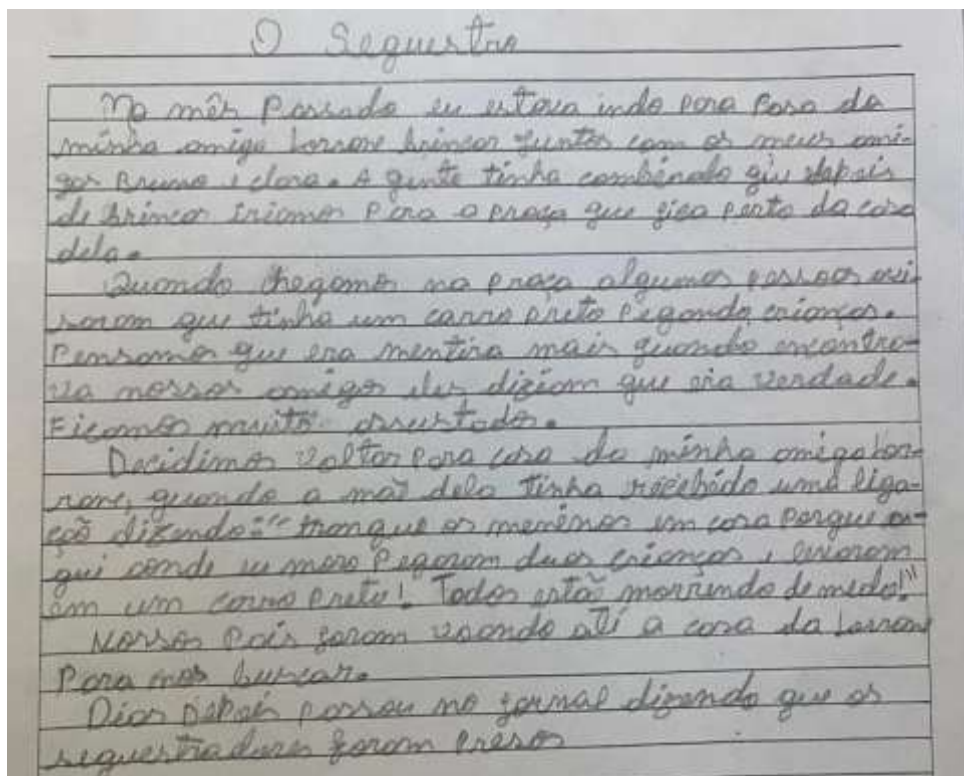 O Sequestro
No mês Passado eu estava indo para Casa da
minha amiga Lorrane brincar juntos com os meus ami-
gos Bruno e clara. A gente tinha combinado que depois
de brincar iriamos Para a praça que fica perto da casa
dela.
Quando chegamos na praça algumas pessoas avi-
saram que tinha um carro preto Pegando crianças.
Pensamos que era mentira mais quando encontra-
va nossos amigos eles diziam que era verdade.
Ficamos muito assustados.
Decidimos voltar Para casa da minha amiga Lor-
rane, quando a mãe dela tinha recebido uma liga-
ção dizendo: "tranque os meninos em casa porque a-
qui aonde eu moro Pegaram duas crianças e levaram
em um carro Preto! Todos estão morrendo de medo!"
Nossos Pais foram voando até a casa da Lorrane
Para nos buscar.
Dias Depois passou no jornal dizendo que os
sequestradores foram presos